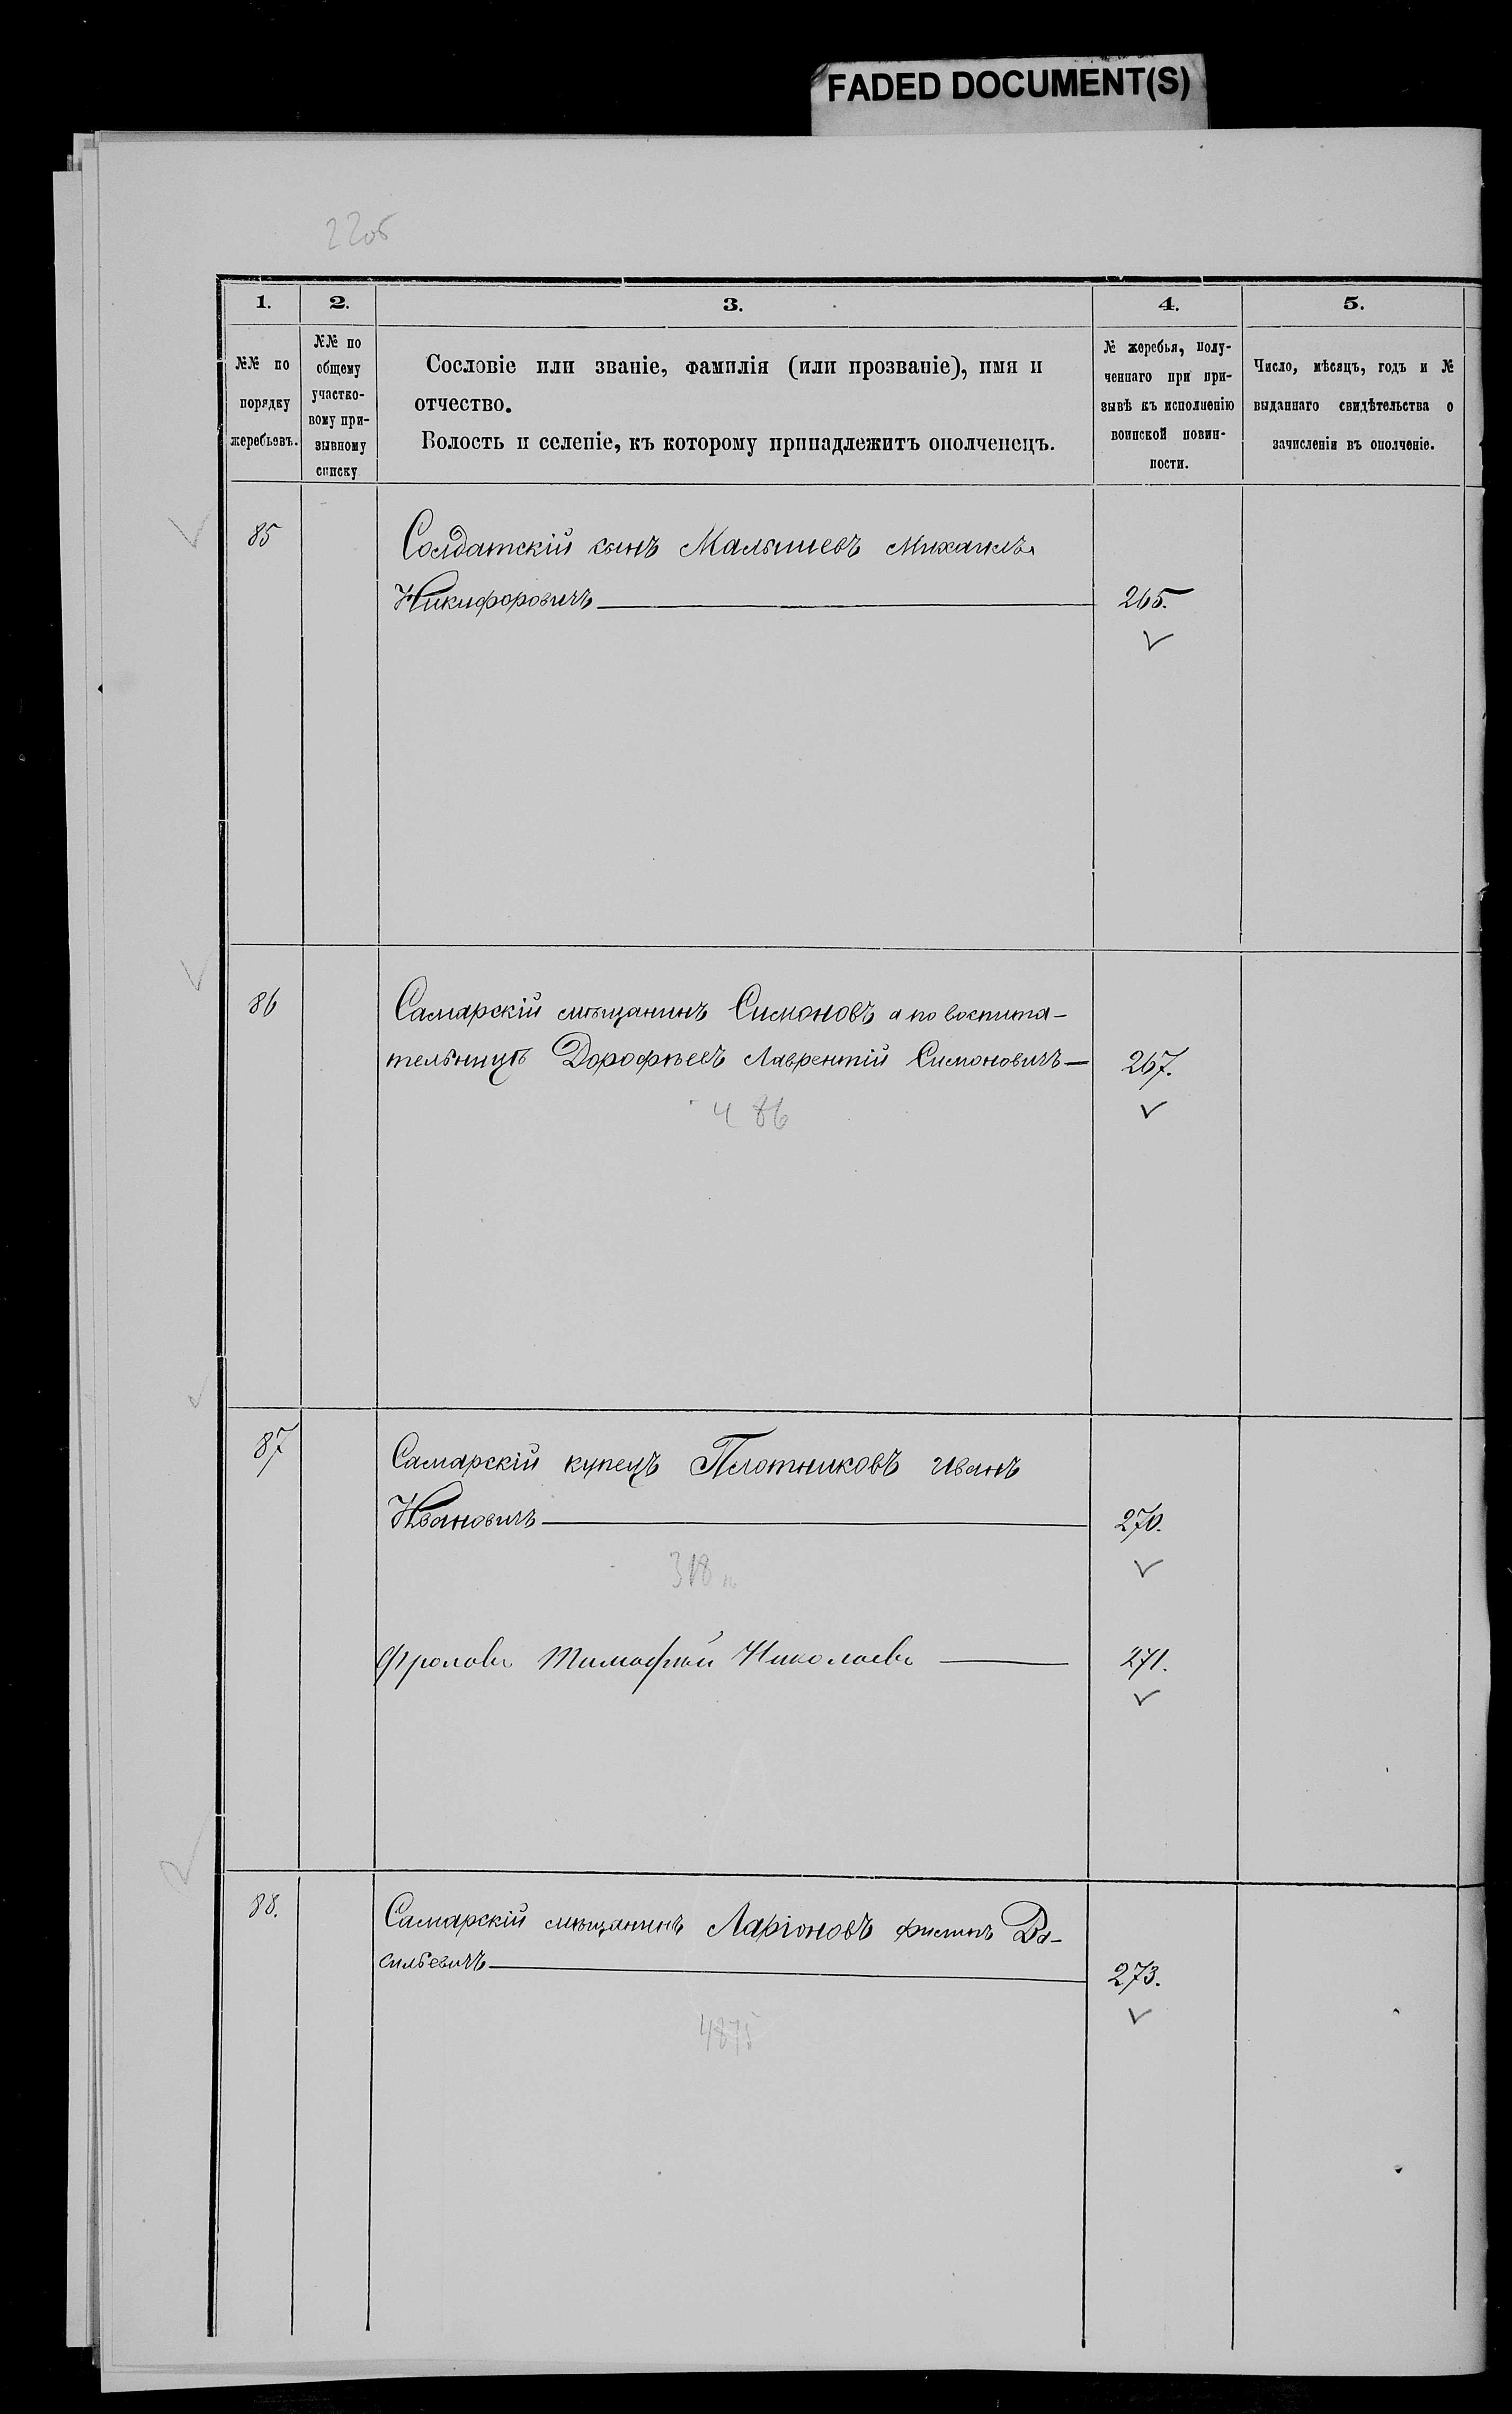 FADED DOCUMENT(S)
22об
1.
2.
3.
4.
5.
№№ по
порядку
жеребьевъ.
№№ по
общему
участко-
вому при-
зывному
списку
Сословіе или званіе, фамилія (или прозваніе), имя и
отчество.
Волость и селеніе, къ которому принадлежитъ ополченецъ.
№ жеребья, полу-
ченнаго при при-
зывѣ къ исполненію
воинской повин-
ности.
Число, мѣсяцъ, годъ и №
выданнаго свидѣтельства о
зачисленіи въ ополченіе.
85
Солдатскій сынъ Малышевъ Михаилъ
Никифоровичъ
265.
86
Самарскій мѣщанинъ Симоновъ а по воспита-
тельницѣ Дорофѣевъ Лаврентій Симоновичъ
267.
486
87
Самарскій купецъ Плотниковъ Иванъ
Ивановичъ
270.
318
Фроловъ Тимофѣй Николаевъ
271.
88.
Самарскій мѣщанинъ Ларіоновъ Ва-
сильевичъ
273.
4875